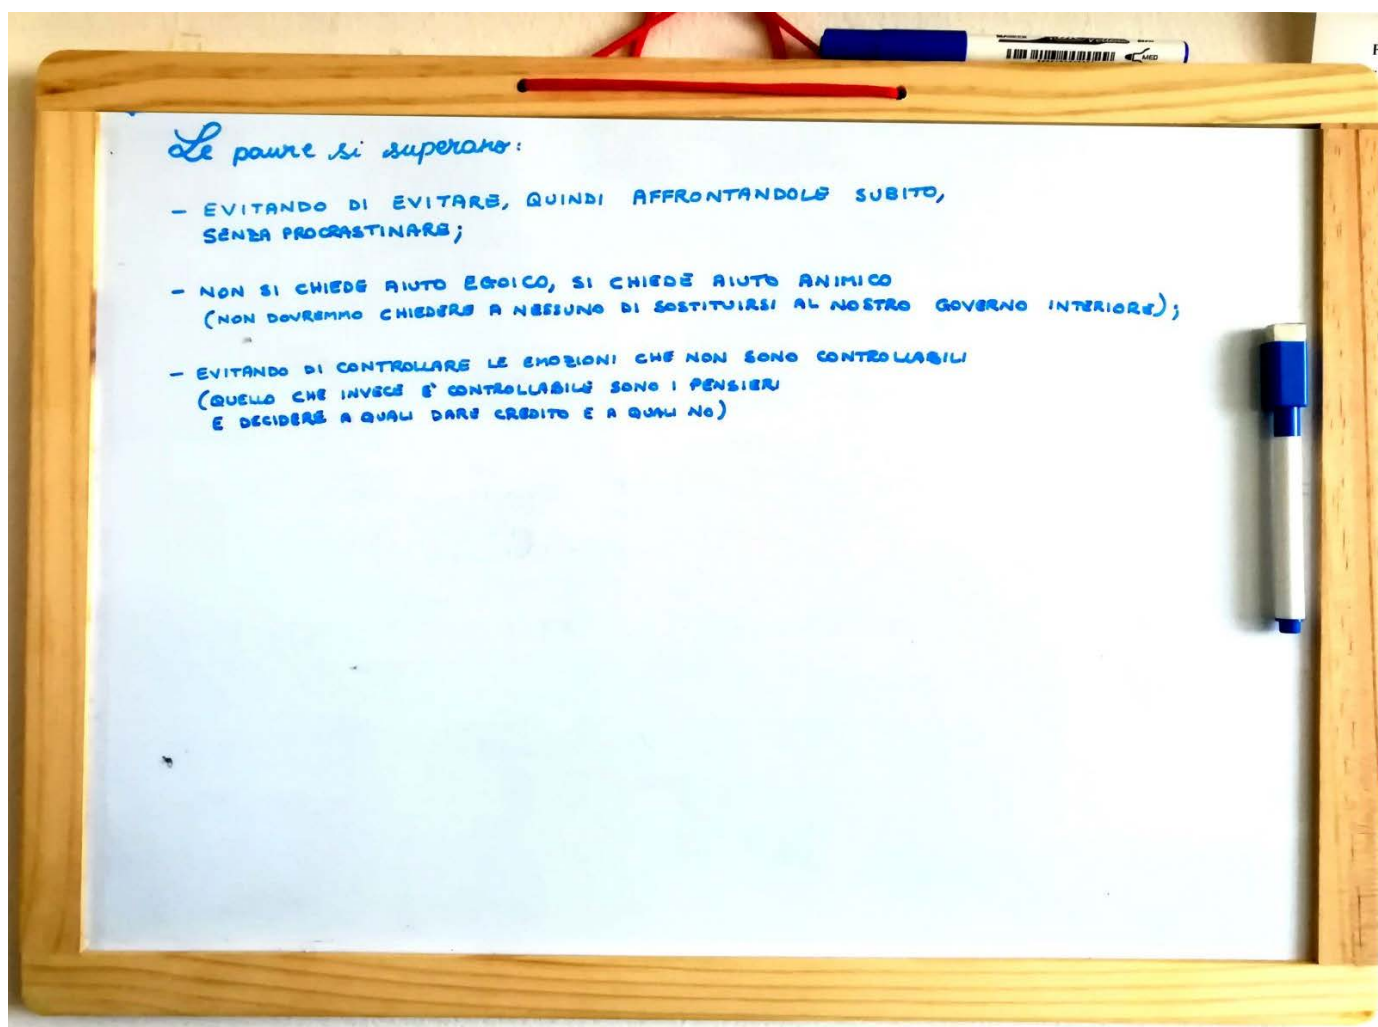 Le paure si superano:
- EVITANDO DI EVITARE, QUINDI AFFRONTANDOLE SUBITO,
SENZA PROCRASTINARE;
- NON SI CHIEDE AIUTO EGOICO, SI CHIEDE AIUTO ANIMICO
(NON DOVREMMO CHIEDERE A NESSUNO DI SOSTITUIRSI AL NOSTRO GOVERNO INTERIORE);
- EVITANDO DI CONTROLLARE LE EMOZIONI CHE NON SONO CONTROLLABILI
(QUELLO CHE INVECE E' CONTROLLABILE SONO I PENSIERI
E DECIDERE A QUALI DARE CREDITO E A QUALI NO)